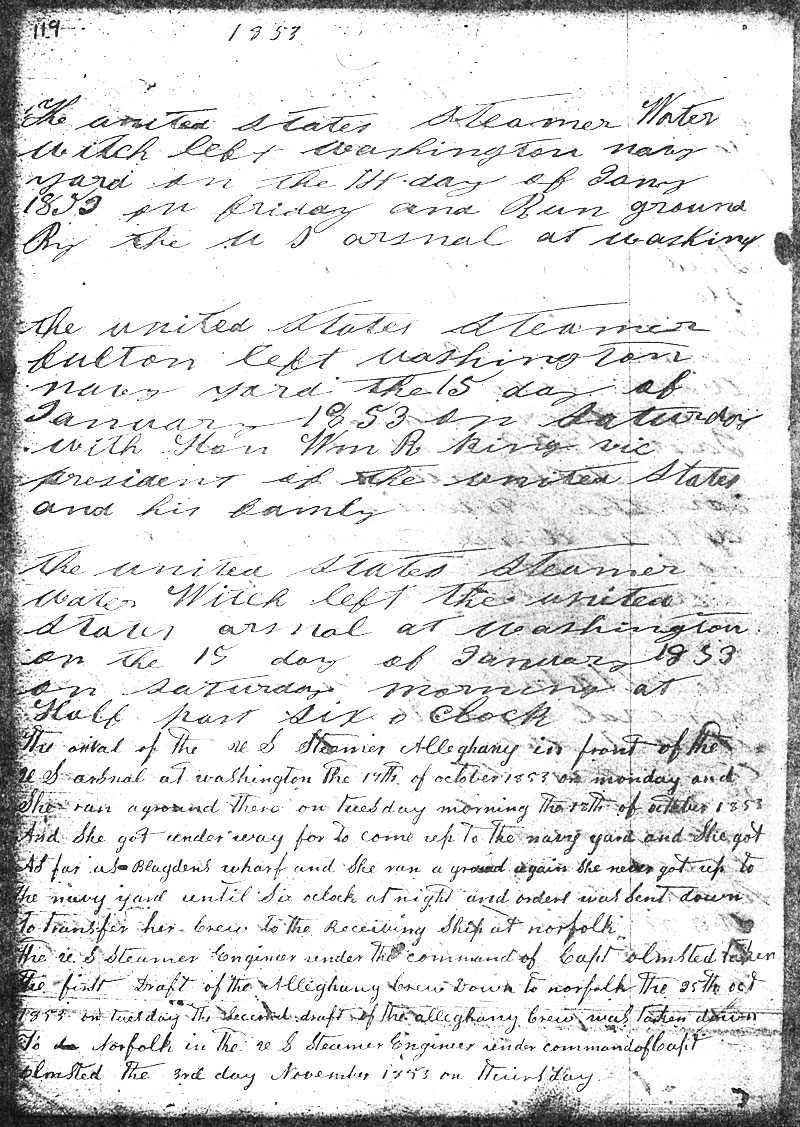 119 1853
The united states steamer Water
witch left washington navy
yard on the 14 day of Jany
1853 on friday and Run ground
By the U S arsnal at washing
the united states steamer
fulton left washington
navy yard the 15 day of
January 1853 on saturday
with Hon Wm R King vic
president of the united states
and his famly
the united states steamer
water Witch left the united
states arsnal at washington
on the 15 day of January 1853
on saturday morning at
Half past six o clock
The arival of the U S Steamer Alleghany in front of the
U S arsnal at washington the 17th of october 1853 on monday and
She ran aground there on tuesday morning the 18th of october 1853
And She got under way for to come up to the navy yard and She got
As far as Blagdens wharf and She ran a ground again She never got up to
the navy yard until Six oclock at night and orders was Sent down
to transfer her Crew to the Receiving Ship at norfolk
the U S Steamer Engineer under the command of Capt olmsted taken
the first Draft of the Alleghany Crew Down to norfolk the 25th oct
1853 on tuesday the Second draft of the alleghany Crew was taken down
To Norfolk in the U S Steamer Engineer under command of Capt
olmsted the 3rd day November 1853 on thursday.